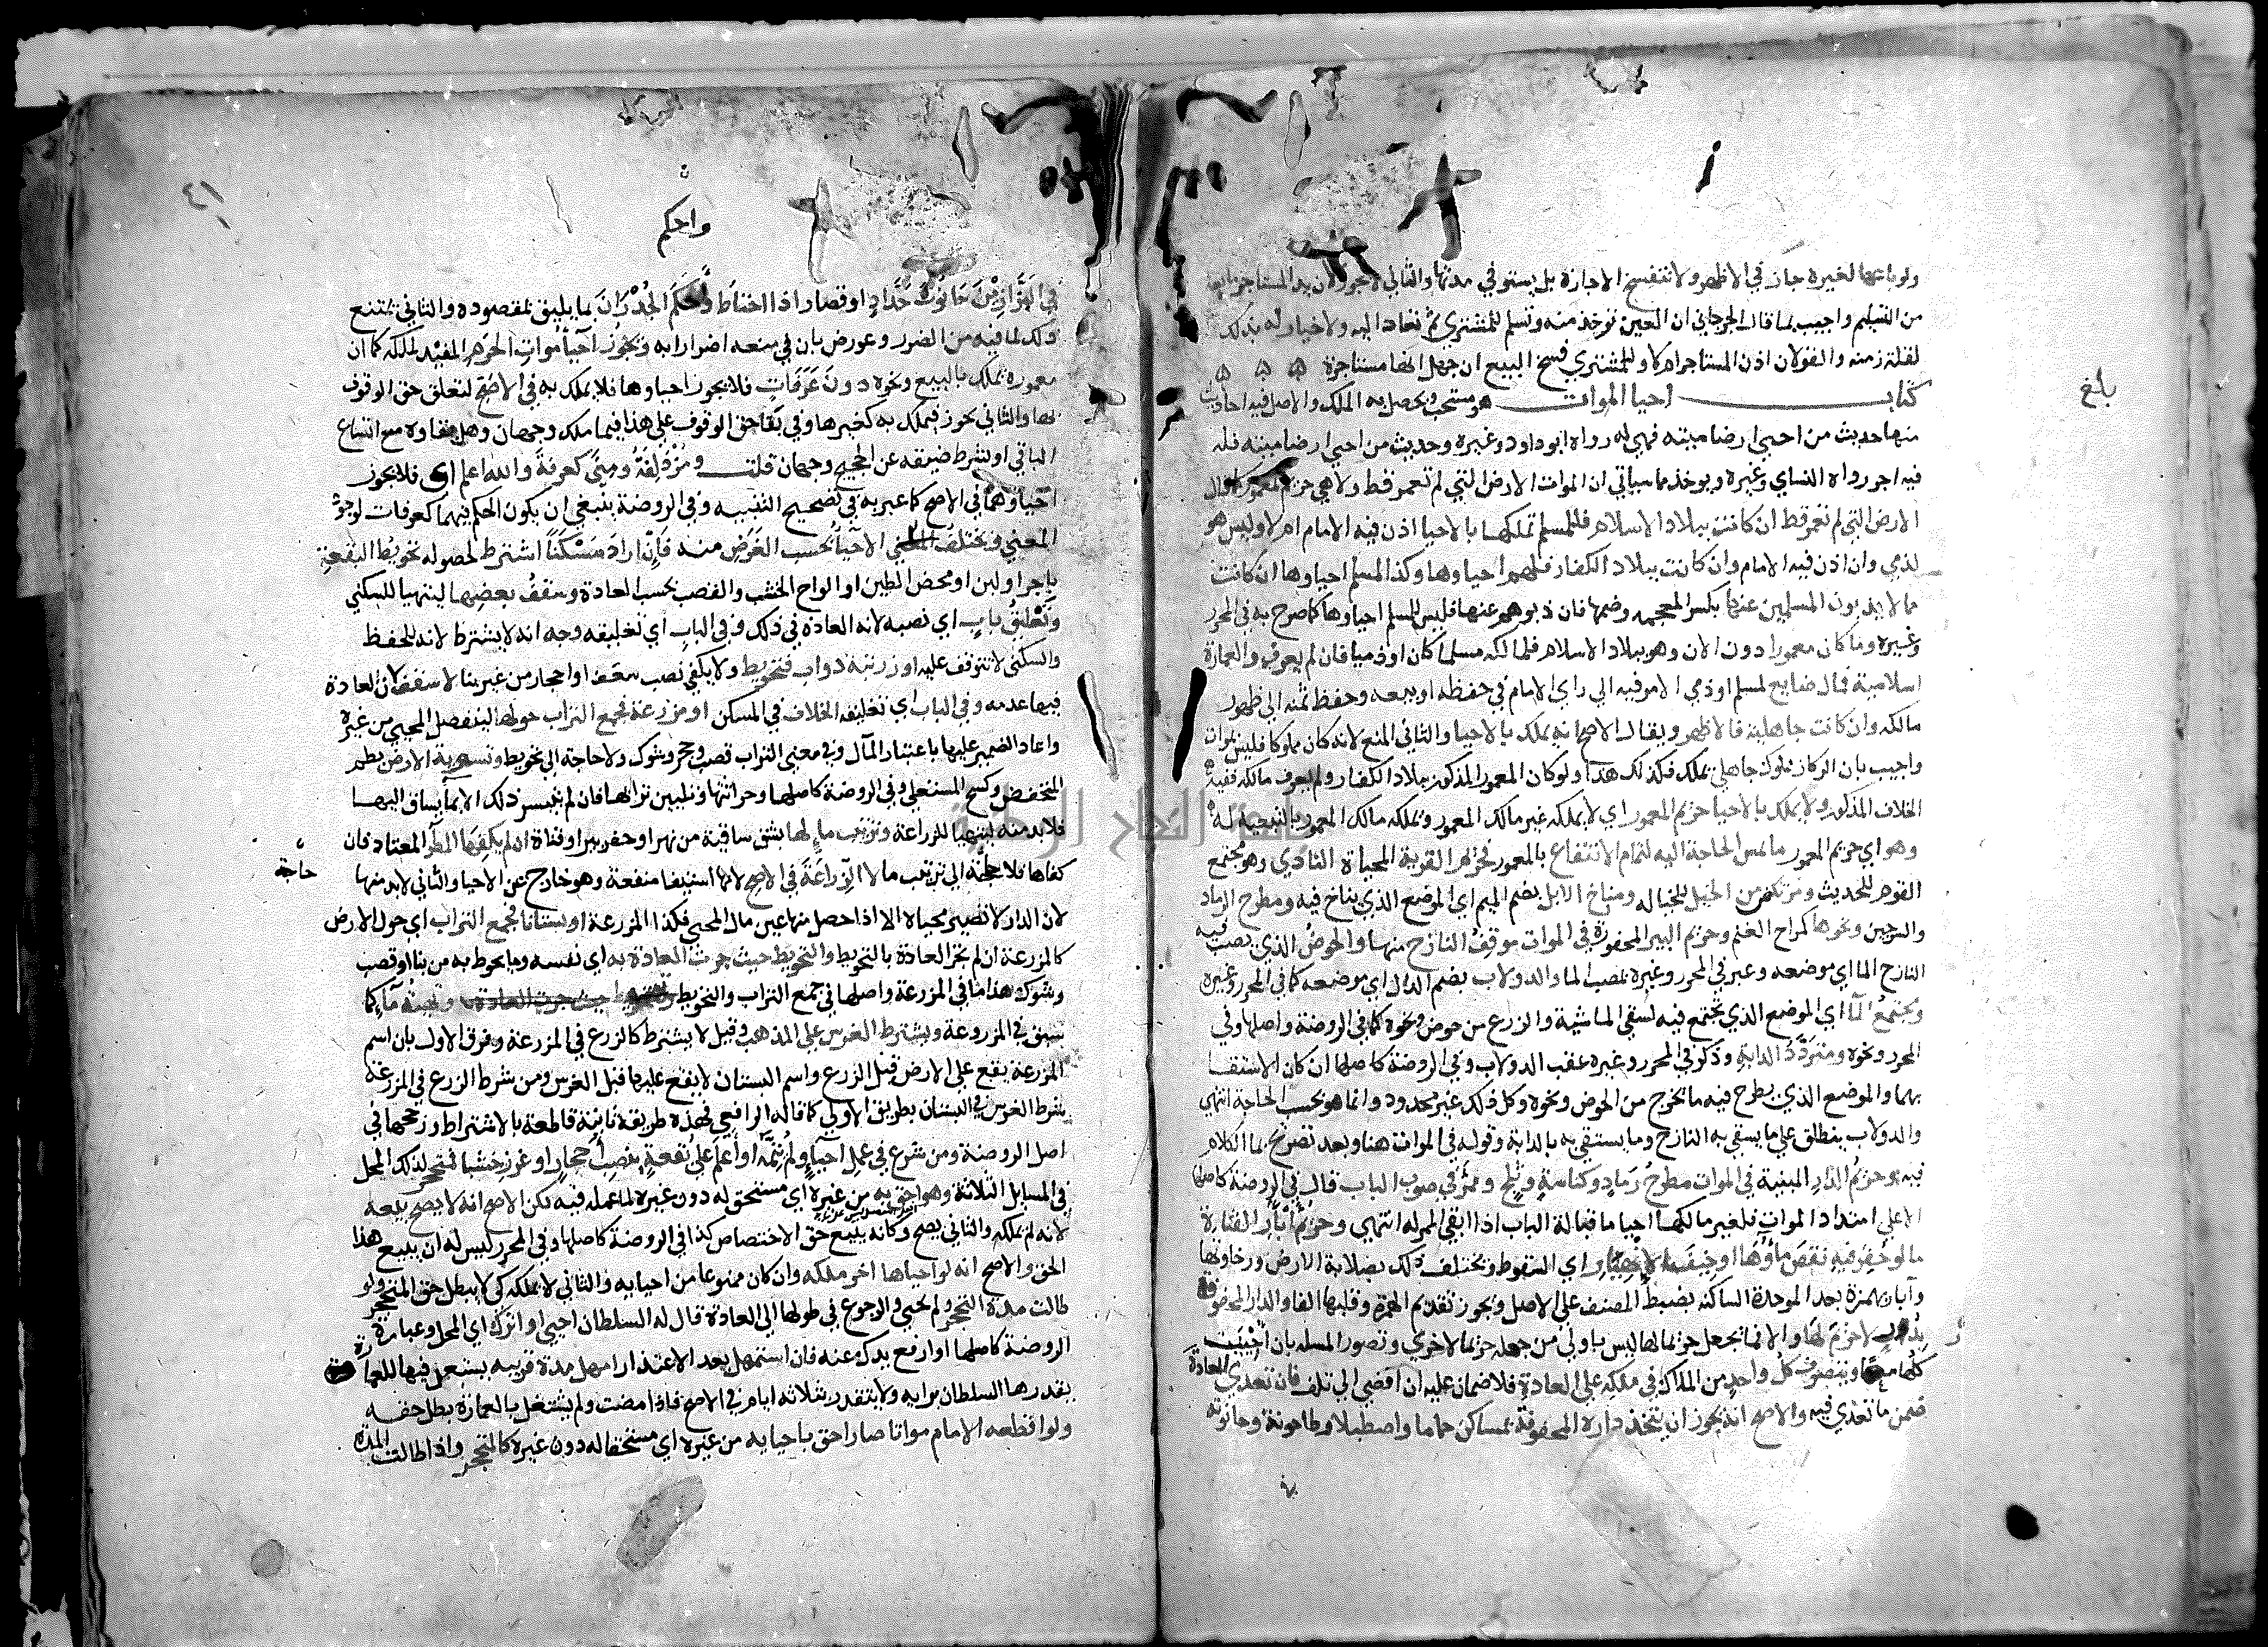 ولو باعها لغيره جاز في الاظهر ولا تنفسخ الاجارة بل يستوفي مدتها والثاني لا يجوز لان يد المستاجر مانعة
من التسليم واجيب بما قاله الجرجاني ان العين توخذ منه وتسلم للمشتري ثم تعاد اليه ولا خيار له بذلك
لقلة زمنه والقولان اذن المستاجر ام لا وللمشتري فسخ البيع ان جهل انها مستاجرة
كتاب احيا الموات هو مستحب ويحصل به الملك والاصل فيه احاديث
منها حديث من احيي ارضا ميتة فهي له رواه ابو داود وغيره وحديث من احيي ارضا ميتة فله
فيه اجر رواه النساي وغيره ويوخذ مما سياتي ان الموات الارض التي لم تعمر قط ولا هي حريم لمعمور قال
الارض التي لم تعمر قط ان كانت ببلاد الاسلام فللمسلم تملكها بالاحيا اذن فيه الامام ام لا وليس هو
لذمي وان اذن فيه الامام وان كانت ببلاد الكفار فلهم احياوها وكذا المسلم احياوها ان كانت
مما لا يذبون المسلمين عنها بكسر المعجمه وضمها فان ذبوهم عنها فليس للمسلم احياوها كما صرح به في المحرر
وغيره وما كان معمورا دون الان وهو ببلاد الاسلام فلمالكه مسلما كان او ذميا فان لم يعرف والعمارة
اسلامية فمال ضايع لمسلم او ذمي الامر فيه الي راي الامام في حفظه او بيعه وحفظ ثمنه الي ظهور
مالكه وان كانت جاهلية فالاظهر ويقال الاصح انه يملك بالاحيا والثاني المنع لانه كان مملوكا فليس بموات
واجيب بان الركاز مملوك جاهلي يملك فكذلك هذا ولو كان المعمور المذكور ببلاد الكفار ولم يعرف مالكه ففيه
الخلاف المذكور ولا يملك بالاحيا حريم المعمور اي لا يملكه غير مالك المعمور ويملكه مالك المعمور بالتبعية له
وهو اي حريم المعمور ما تمس الحاجة اليه لتمام الانتفاع بالمعمور فحريم القرية المحياة النادي وهو مجتمع
القوم للحديث ومرتكض الخيل للخيالة ومناخ الابل بضم الميم اي الموضع الذي يناخ فيه ومطرح الرماد
والسرجين ونحوها كمراح الغنم وحريم البير المحفورة في الموات موقف النازح منها والحوض الذي يصب فيه
النازح الما اي موضعه وعبر في المحرر وغيره بمصب الما والدولاب بضم الدال اي موضعه كما في المحرر وغيره
ومجتمع الما اي الموضع الذي يجتمع فيه لسقي الماشية والزرع من حوض ونحوه كما في الروضة واصلها وفي
المحرر ونحوه ومتردد الدابة وذكر في المحرر وغيره عقب الدولاب وفي الروضة كاصلها ان كان الاستقا
بهما والموضع الذي يطرح فيه ما يخرج من الحوض ونحوه وكل ذلك غير محدود وانما هو بحسب الحاجة انتهي
والدولاب ينطلق علي ما يستقي به النازح وما يستقي به بالدابة وقوله في الموات هنا وبعد تصريح بما الكلام
فيه وحريم الدار المبنية في الموات مطرح رماد وكناسة وثلج وممر في صوب الباب قال في الروضة كاصلها
الاعلي امتداد الموات فلغير مالكها احيا ما قبالة الباب اذا ابقي الممر له انتهي وحريم ابار القناة
ما لو حفر فيه نقص ماوها او خيف الانهيار اي السقوط ويختلف ذلك بصلابة الارض ورخاوتها
وابار بهمزة بعد الموحدة الساكنة بضبط المصنف علي الاصل ويجوز تقديم الهمزة وقلبها الفا والدار المحفوفة
بدور لا حريم لها والا فما يجعل حريما لها ليس باولي من جعله حريما لاخري وتصور المسلة بان احييت
كلها معا ويتصرف كل واحد من الملاك في ملكه علي العادة فلا ضمان عليه ان افضي الي تلف فان تعدي العادة
ضمن ما تعدي فيه والاصح انه يجوز ان يتخذ داره المحفوفة بمساكن حماما واصطبلا وطاحونة وحانوته
بلغ
٤١
واحكم
في البزازين حانوت حداد او قصار اذا احتاط واحكم الجدران بما يليق بمقصوده والثاني يمتنع
ذلك لما فيه من الضرر وعورض بان في منعه اضرارا به ويجوز احيا موات الحرم المفيد لملكه كما ان
معموره يملك بالبيع ونحوه دون عرفات فلا يجوز احياوها فلا يملك به في الاصح لتعلق حق الوقوف
بها والثاني يجوز فيملك به كغيرها وفي بقا حق الوقوف علي هذا فيما ملك وجهان وهل بقاوه مع اتساع
الباقي او بشرط ضيقه عن الحجيج وجهان قلت ومزدلفة ومني كعرفة والله اعلم اي فلا يجوز
احياوهما في الاصح كما عبر به في تصحيح التنبيه وفي الروضة ينبغي ان يكون الحكم فيهما كعرفات لوجود
المعني ويختلف الاحيا بحسب الغرض منه فان اراد مسكنا اشترط لحصوله تحويط البقعة
باجر او لبن او محض الطين او الواح الخشب والقصب بحسب العادة وسقف بعضها ليتهيا للسكني
وتعليق باب اي نصبه لانه العادة في ذلك وفي الباب اي تعليقه وجه انه لا يشترط لانه للحفظ
والسكني لا تتوقف عليه او زريبة دواب فتحويط ولا يكفي نصب سعف او احجار من غير بنا لا سقف لان العادة
فيها عدمه وفي الباب اي تعليقه الخلاف في المسكن او مزرعة فجمع التراب حولها لينفصل المحيي من غيره
واعاد الضمير عليها باعتبار المآل وفي معني التراب قصب وحجر وشوك ولا حاجة الي تحويط وتسوية الارض بطم
المنخفض وكسح المستعلي وفي الروضة كاصلها وحراثتها وتليين ترابها فان لم يتيسر ذلك الا بما يساق اليها
فلا بد منه لتتهيا للزراعة وترتيب ماء لها بشق ساقية من نهر او حفر بير او قناة ان لم يكفها المطر المعتاد فان
كفاها فلا حاجة الي ترتيب ما لا الزراعة في الاصح لانها استيفا منفعة وهو خارج عن الاحيا والثاني لا بد منها
حاجة
لان الدار لا تصير محياة الا اذا حصل منها عين مال المحيي فكذا المزرعة او بستانا فجمع التراب اي حول الارض
كالمزرعة ان لم تجر العادة بالتحويط والتحويط حيث جرت العادة به اي نفسه وما يحوط به من بنا او قصب
وشوك هذا ما في المزرعة واصلها في جمع التراب والتحويط وتهيئة ماء كما
سبق في المزروعة ويشترط الغرس علي المذهب وقيل لا يشترط كالزرع في المزرعة وفرق الاول بان اسم
المزرعة يقع علي الارض قبل الزرع واسم البستان لا يقع عليها قبل الغرس ومن شرط الزرع في المزرعة
شرط الغرس في البستان بطريق الاولي كما قاله الرافعي فهذه طريقة ثانية قاطعة بالاشتراط ورجحها في
اصل الروضة ومن شرع في عمل احيا ولم يتمه او اعلم علي بقعة بنصب احجار او غرز خشبا فمتحجر لذلك المحل
في المسايل الثلاثة وهو احق به من غيره اي مستحق له دون غيره لما عمله فيه لكن الاصح انه لا يصح بيعه
لانه لم يملكه والثاني يصح وكانه يبيع حق الاختصاص كذا في الروضة كاصلها وفي المحرر ليس له ان يبيع هذا
الحق والاصح انه لو احياها اخر ملكه وان كان ممنوعا من احيايه والثاني لا يملكه كي لا يبطل حق المتحجر ولو
طالت مدة التحجر ولم يحيي والرجوع في طولها الي العادة قال له السلطان احيي او اترك اي المحل وعبارة
الروضة كاصلها او ارفع يدك عنه فان استمهل بعد الاعتذار امهل مدة قريبه يستعد فيها للعمارة
يقدرها السلطان برايه ولا يتقدر بثلاثه ايام في الاصح فاذا مضت ولم يشتغل بالعمارة بطل حقه
ولو اقطعه الامام مواتا صار احق باحيايه من غيره اي مستحقا له دون غيره كالمتحجر واذا طالت المدة